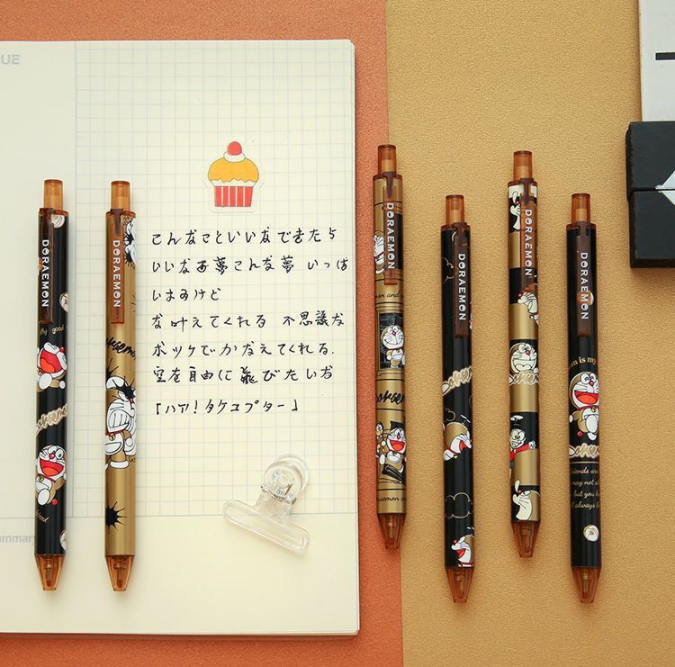 UE
こんなこといいなできたら
いいなあ夢こんな夢 いっぱ
いあるけど
な叶えてくれる 不思議な
ポッケでかなえてくれる.
空を自由に飛びたいな
「ハア!タケコプター」
mmary
DORAEMON
DORAEMON
DORAEMON
DORAEMON
DORAEMON
DORAEMON